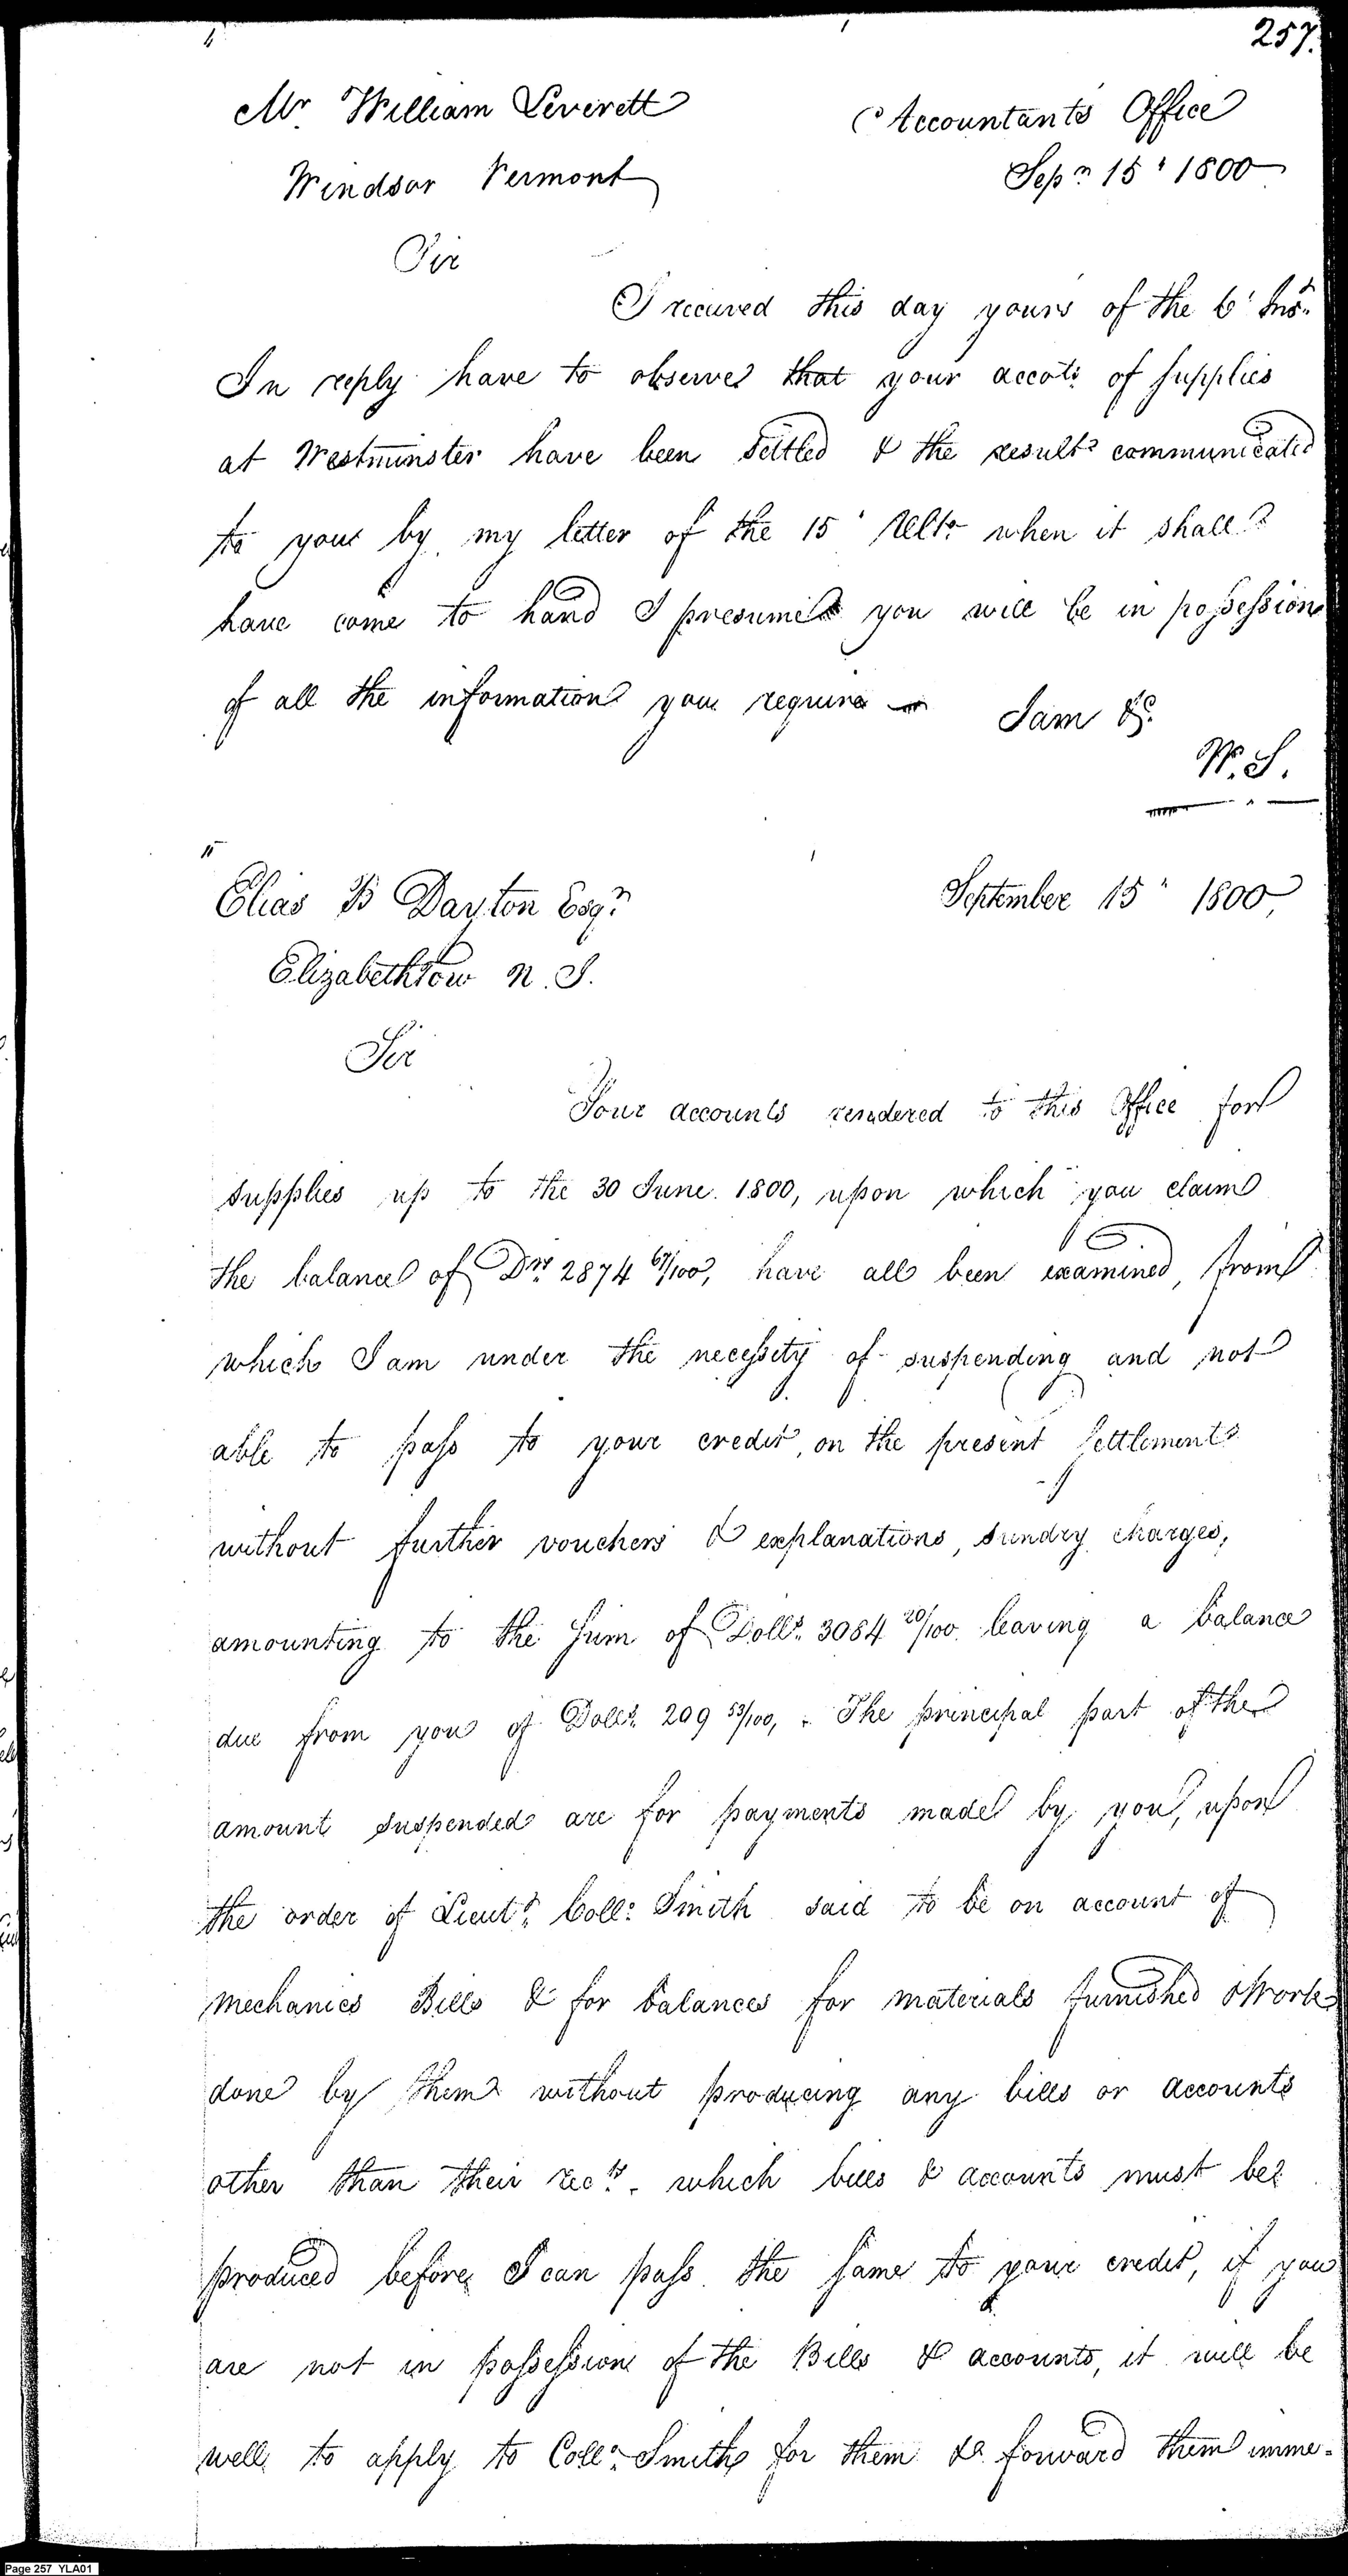 257.
Mr. William Leverett
Accountants Office
Windsor Vermont
Sepr. 15' 1800
Sir
I received this day yours of the 6' Inst.
In reply have to observe that your accots. of supplies
at Westminster have been settled & the result communicated
to you by my letter of the 15' Ulto. when it shall
have come to hand I presume you will be in possession
of all the information you require — I am &c.
W. S.
Elias B Dayton Esqr.
September 15" 1800,
Elizabethtow N. J.
Sir
Your accounts rendered to this Office for
supplies up to the 30 June. 1800, upon which you claim
the balance of Drs. 2874 67/100, have all been examined, from
which I am under the necessity of suspending and not
able to pass to your credit, on the present settlement
without further vouchers & explanations, sundry charges,
amounting to the sum of Dolls. 3084 20/100. leaving a balance
due from you of Dolls. 209 53/100, . The principal part of the
amount suspended are for payments made by you, upon
the order of Lieut. Coll. Smith said to be on account of
Mechanics Bills & for balances for materials furnished & Work
done by them without producing any bills or accounts
other than their rects. which bills & accounts must be
produced before I can pass the same to your credit, if you
are not in possession of the Bills & accounts, it will be
well to apply to Coll. Smith for them & forward them imme-
Page 257 YLA01